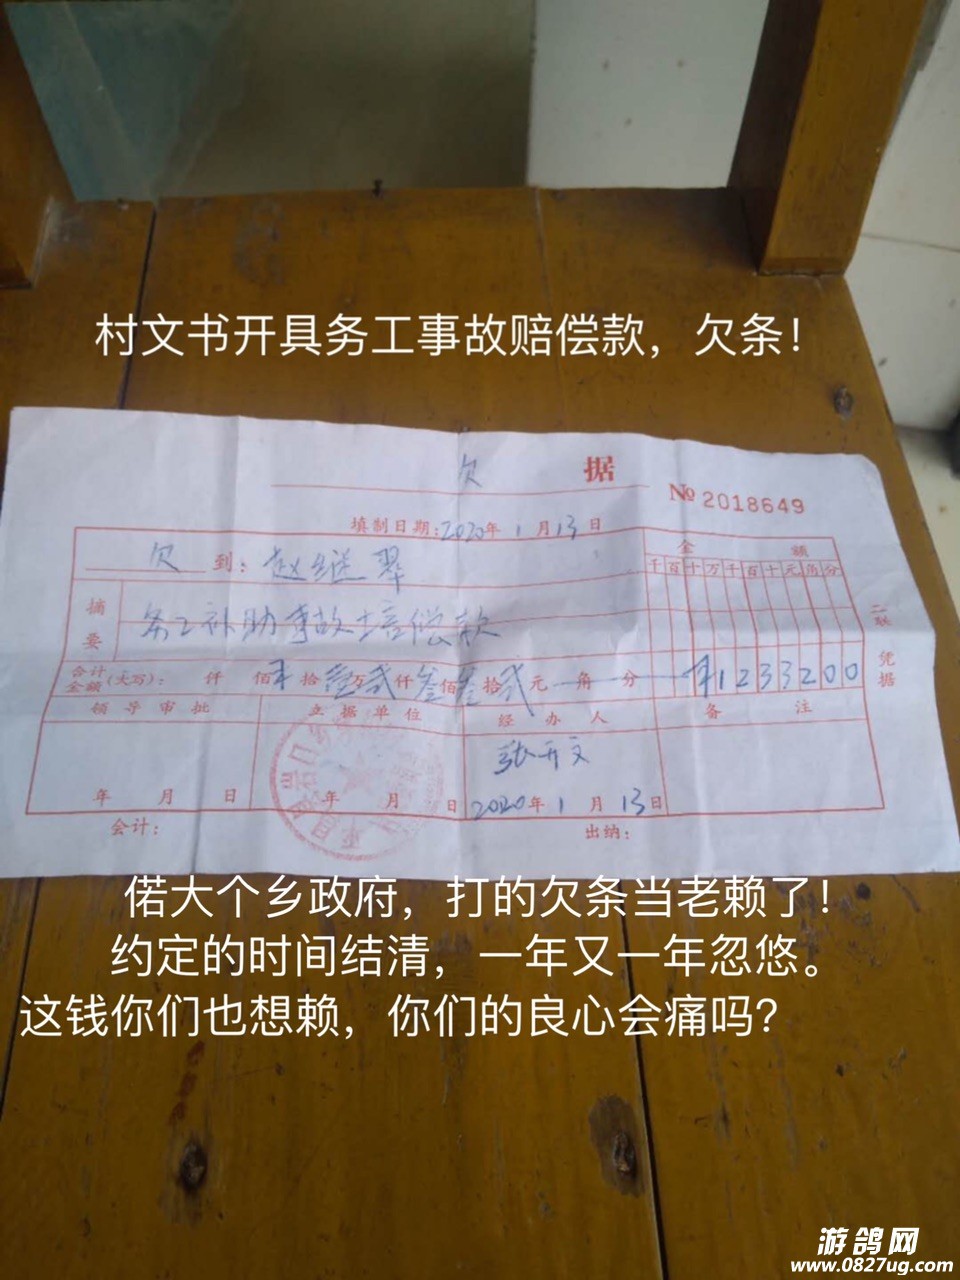 村文书开具务工事故赔偿款，欠条！
欠 据
№ 2018649
填制日期：2020年 1 月 13 日
欠 到：赵继翠
金 额
千百十万千百十元角分
摘要 务工补助事故培偿款
二联 凭据
合计金额(大写)： 仟 佰 拾 壹万贰仟叁佰叁拾贰元 角 分 ¥1233200
领导审批 立据单位 经办人 备注
张开文
年 月 日 年 月 日 2020年 1 月 13日
会计： 出纳：
偌大个乡政府，打的欠条当老赖了！
约定的时间结清，一年又一年忽悠。
这钱你们也想赖，你们的良心会痛吗？
游鸽网
www.0827ug.com